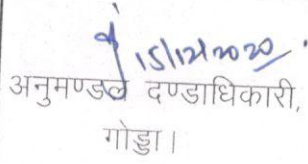 15/12/2020
अनुमण्डल दण्डाधिकारी,
गोड्डा।